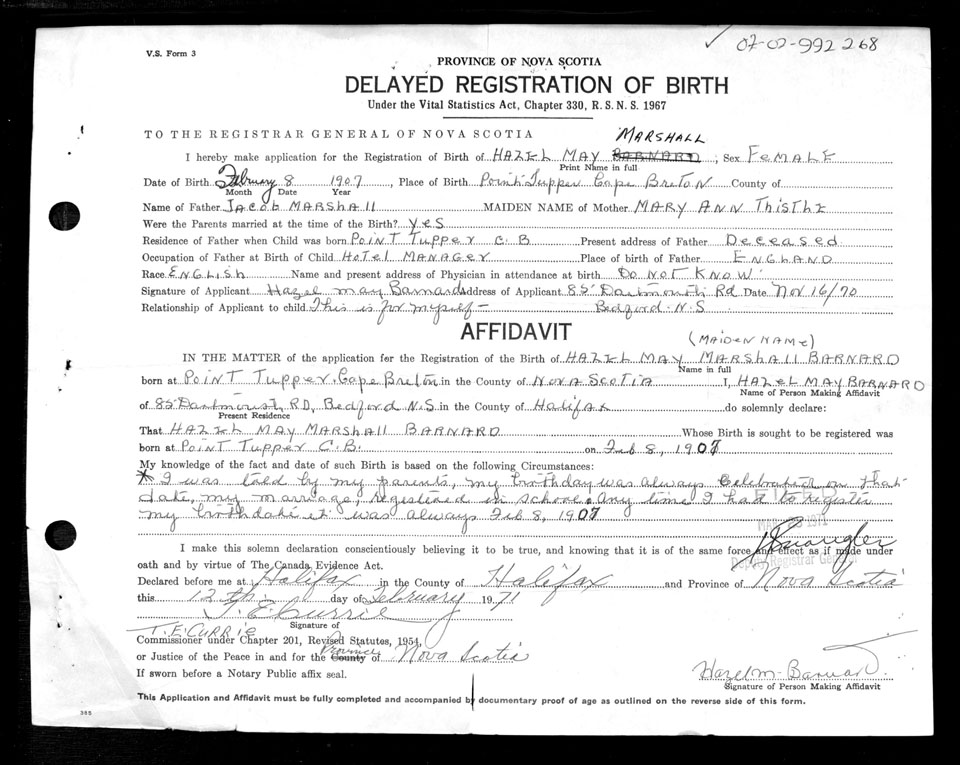 07-02-992268
V.S. Form 3
PROVINCE OF NOVA SCOTIA
DELAYED REGISTRATION OF BIRTH
Under the Vital Statistics Act, Chapter 330, R.S.N.S. 1967
TO THE REGISTRAR GENERAL OF NOVA SCOTIA
MARSHALL
I hereby make application for the Registration of Birth of HAZEL MAY BARNARD; Sex FEMALE
Print Name in full
Date of Birth February 8 1907, Place of Birth Point Tupper Cape Breton County of
Month Date Year
Name of Father JACOB MARSHAll MAIDEN NAME of Mother MARY ANN ThistlE
Were the Parents married at the time of the Birth? yES
Residence of Father when Child was born POINT TUPPER C.B Present address of Father Deceased
Occupation of Father at Birth of Child HOTEL MANAGER Place of birth of Father ENGLAND
Race ENGLISH Name and present address of Physician in attendance at birth DO NOT KNOW
Signature of Applicant Hazel May Barnard Address of Applicant 85 Dartmouth Rd Date Nov 16/70
Relationship of Applicant to child This is for myself- Bedford. N.S
AFFIDAVIT
(MAIDEN NAME)
IN THE MATTER of the application for the Registration of the Birth of HAZEL MAY MARSHAll BARNARD
Name in full
born at POINT TUPPER, Cape Breton in the County of NOVA SCOTIA I, HAZEL MAY BARNARD
Name of Person Making Affidavit
of 85 Dartmouth RD, Bedford N.S in the County of Halifax do solemnly declare:
Present Residence
That HAZEL MAY MARSHAll BARNARD Whose Birth is sought to be registered was
born at POINT TUPPER C.B. on Feb 8, 1907
My knowledge of the fact and date of such Birth is based on the following Circumstances:
* I was told by my parents, my birthday was always celebrated on that
date, my marriage, registered in school, any time I had to register
my birthdate it was always Feb 8, 1907
I make this solemn declaration conscientiously believing it to be true, and knowing that it is of the same force and effect as if made under
Deputy Registrar General
oath and by virtue of The Canada Evidence Act.
Declared before me at Halifax in the County of Halifax, and Province of Nova Scotia
this 12th day of February 1971
T. E. Currie
Signature of
T. E. CURRIE
Commissioner under Chapter 201, Revised Statutes, 1954,
Province
or Justice of the Peace in and for the County of Nova Scotia
If sworn before a Notary Public affix seal.
Hazel M. Barnard
Signature of Person Making Affidavit
This Application and Affidavit must be fully completed and accompanied by documentary proof of age as outlined on the reverse side of this form.
385